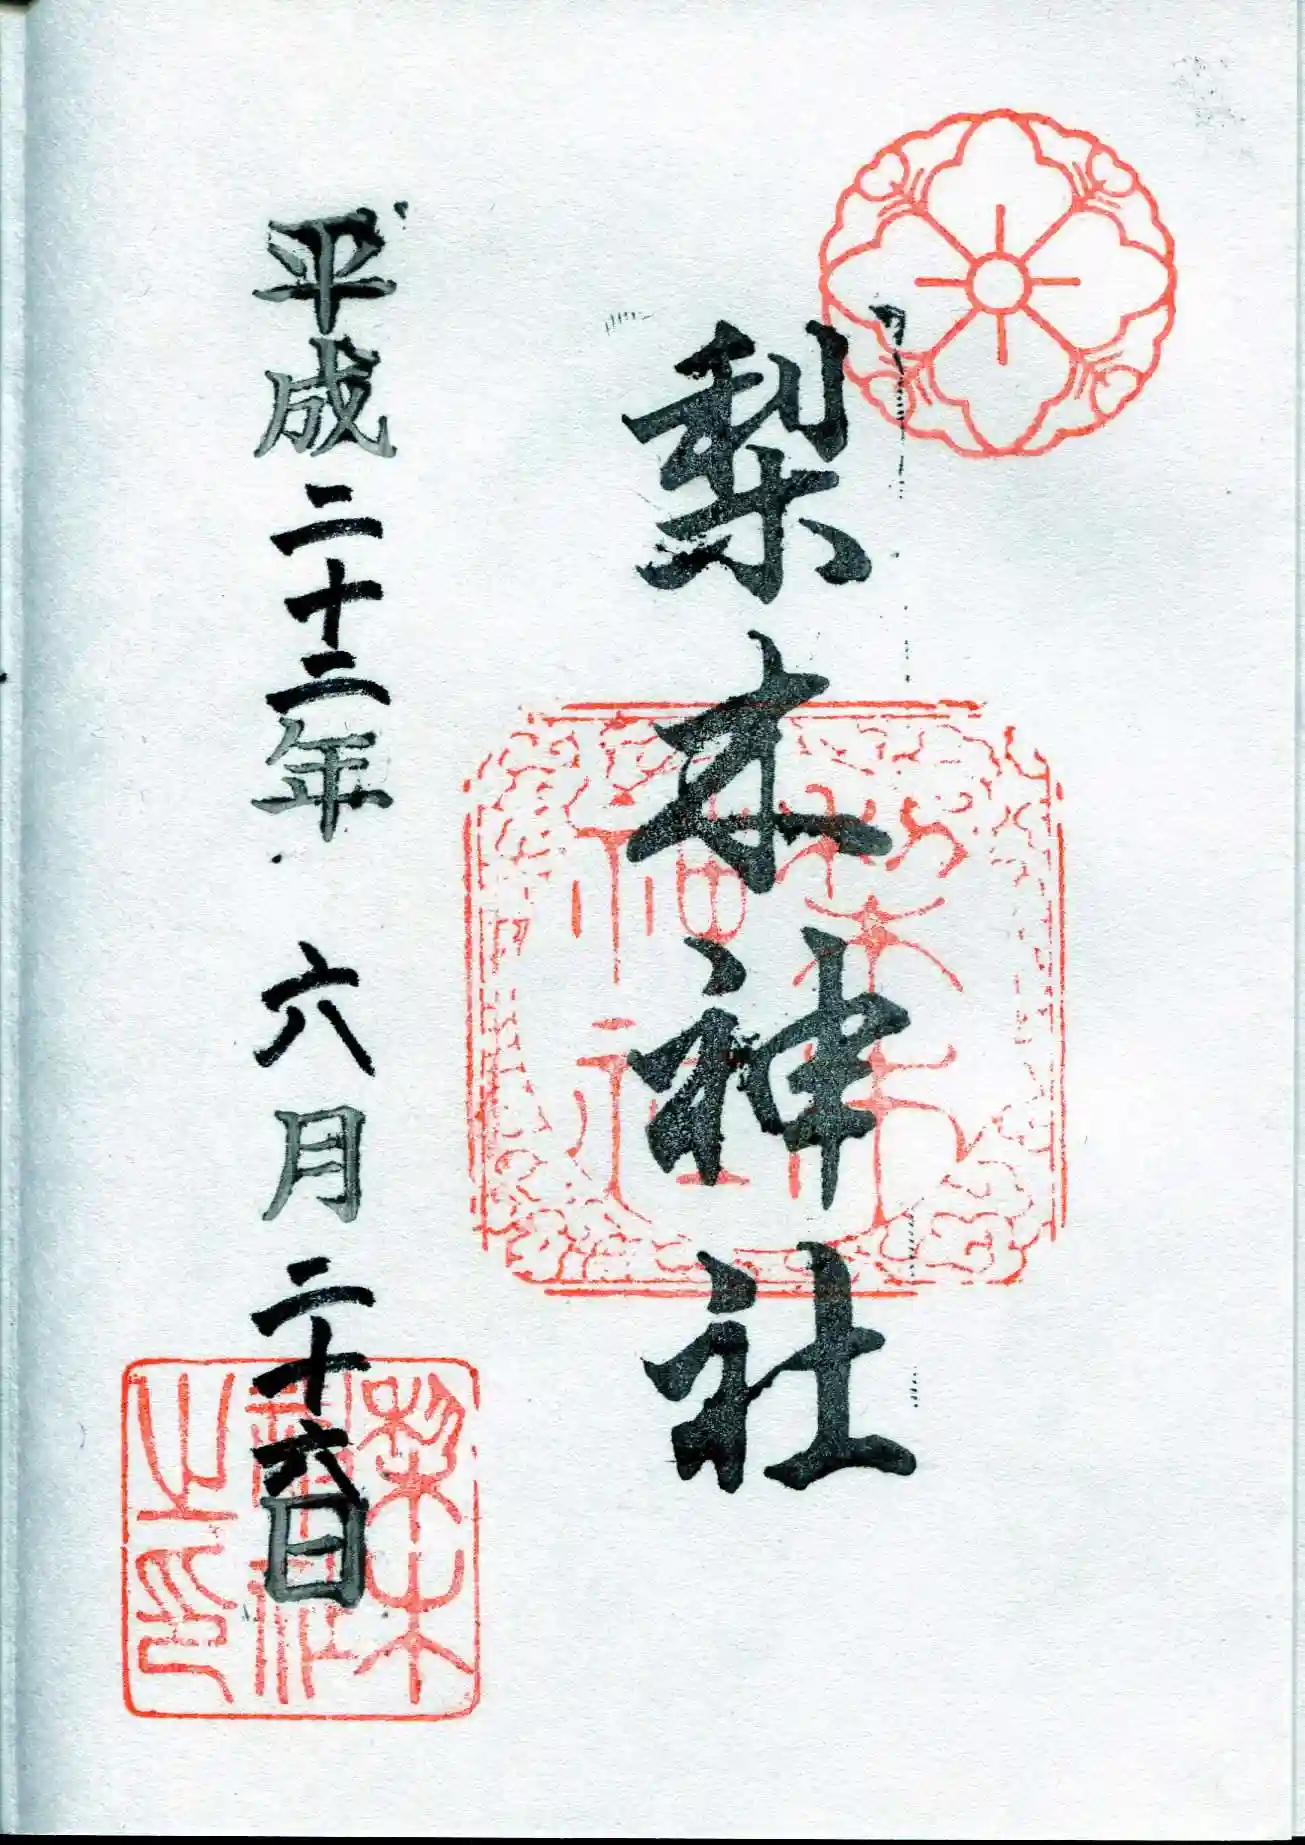 梨木神社
平成二十二年 六月二十六日
梨木
神社
梨木
神社
之印